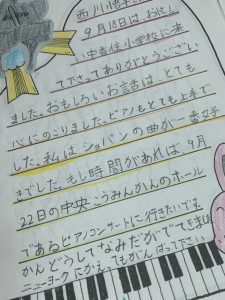 西川悟平さ
9月18日は、お忙し
い中 住小学校に来
て下さってありがとうござい
ました。おもしろいお話は、とても
心にのこりました。ピアノもとても上手で
した。私はショパンの曲が一番好
きでした。もし時間があれば、9月
22日の中央こうみんかんのホール
であるピアノコンサートに行きたいです。
かんどうしてなみだがでてきました。
ニューヨークにかえってもがんばって下さい